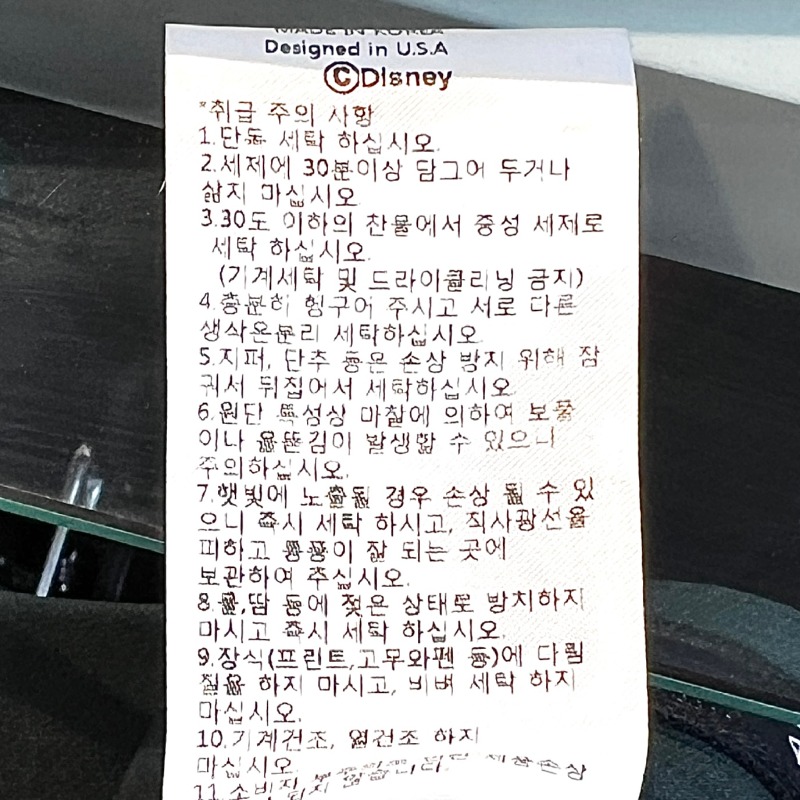 MADE IN KOREA
Designed in U.S.A
©Disney
*취급 주의 사항
1.단독 세탁 하십시오.
2.세제에 30분이상 담그어 두거나
삶지 마십시오.
3.30도 이하의 찬물에서 중성 세제로
세탁 하십시오.
(기계세탁 및 드라이클리닝 금지)
4.충분히 헹구어 주시고 서로 다른
색상은분리 세탁하십시오.
5.지퍼, 단추 등은 손상 방지 위해 잠
궈서 뒤집어서 세탁하십시오.
6.원단 특성상 마찰에 의하여 보풀
이나 올뜯김이 발생할 수 있으니
주의하십시오.
7.햇빛에 노출될 경우 손상 될 수 있
으니 즉시 세탁 하시고, 직사광선을
피하고 통풍이 잘 되는 곳에
보관하여 주십시오.
8.물,땀 등에 젖은 상태로 방치하지
마시고 즉시 세탁 하십시오.
9.장식(프린트,고무와펜 등)에 다림
질을 하지 마시고, 비벼 세탁 하지
마십시오.
10.기계건조, 열건조 하지
마십시오.
11.소비자 제품손상